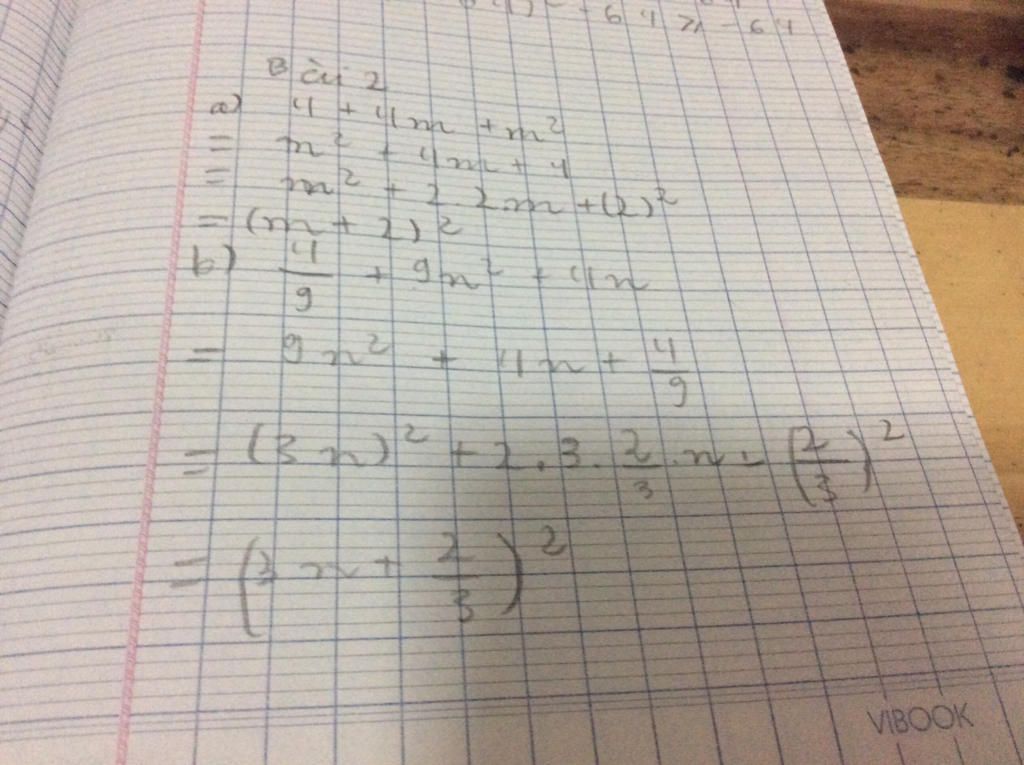 - 6 4 x - 64
Bài 2
a) 4 + 4m + m²
= m² + 4m + 4
= m² + 2.2m + (2)²
= (m + 2)²
b) 4/9 + 9n² + 4n
= 9n² + 4n + 4/9
= (3n)² + 2.3.2/3.n - (2/3)²
= (3n + 2/3)²
VIBOOK